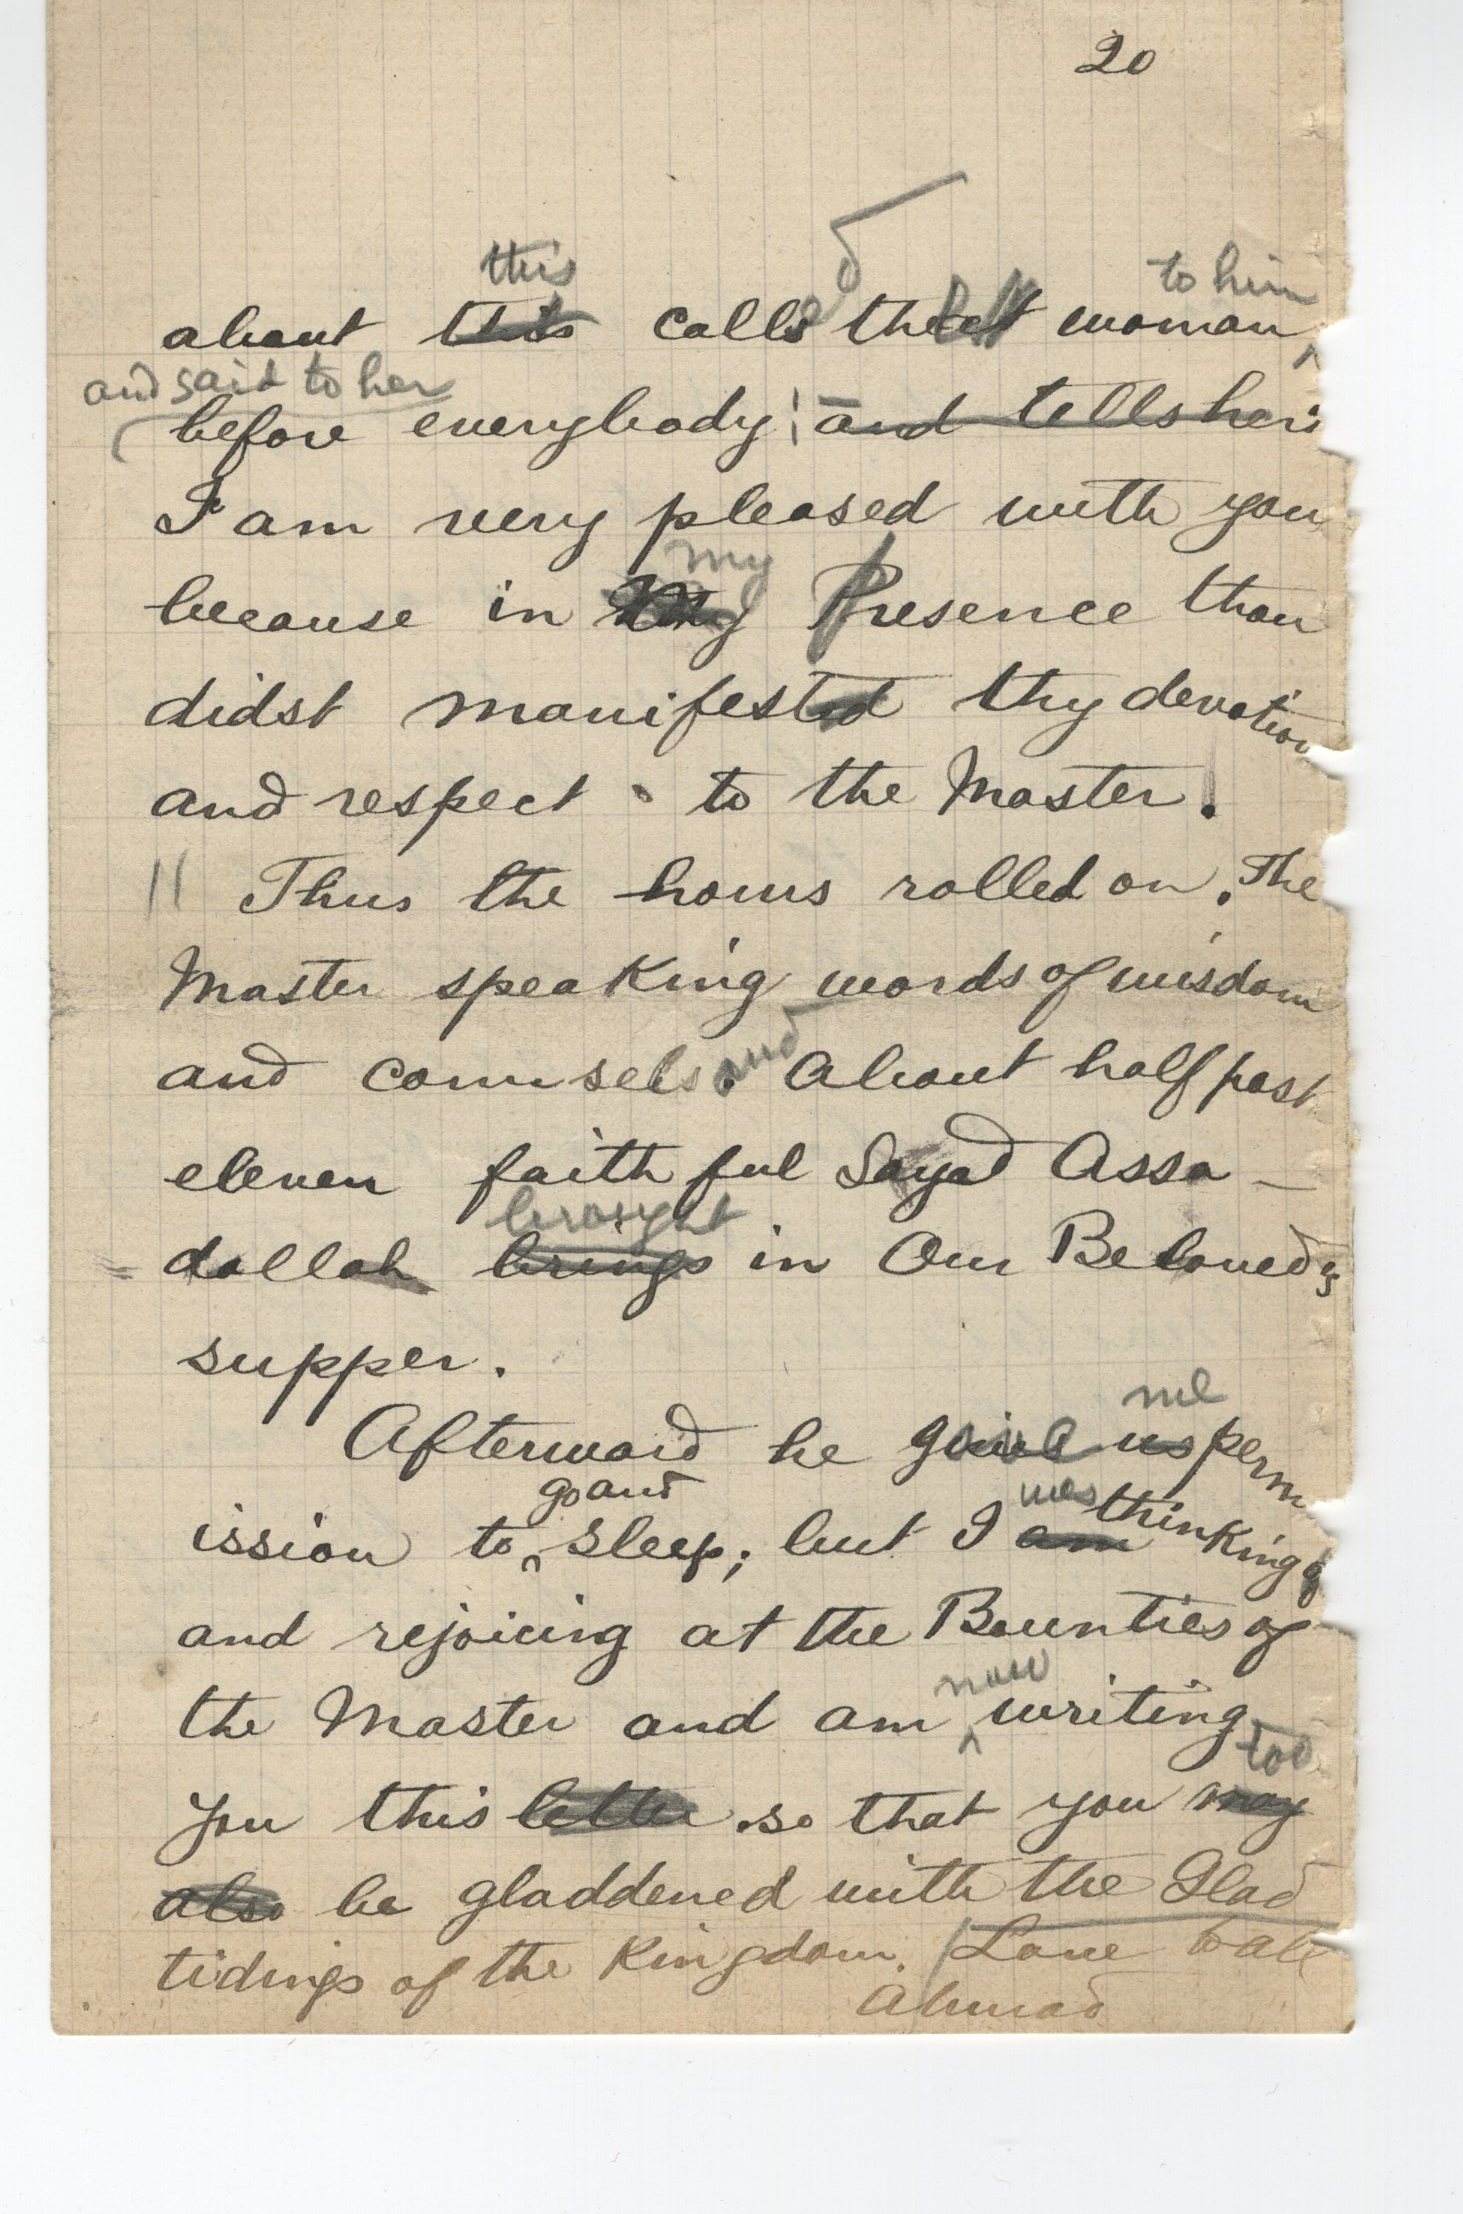 20
this
to him
about this called that woman
and said to her
before everybody; and tells her:
I am very pleased with you
my
because in My Presence thou
didst manifested thy devotion
and respect to the Master.
Thus the hours rolled on. The
Master speaking words of wisdom
and counsels. and About half past
eleven faithful Sayad Assa-
brought
dollah brings in Our Beloved's
supper.
me
Afterward he gave us perm
go and was
ission to sleep; but I am thinking of
and rejoicing at the Bounties of
now
the Master and am writing
too
you this letter so that you may
also be gladdened with the Glad
tidings of the Kingdom. Love to all
Ahmad